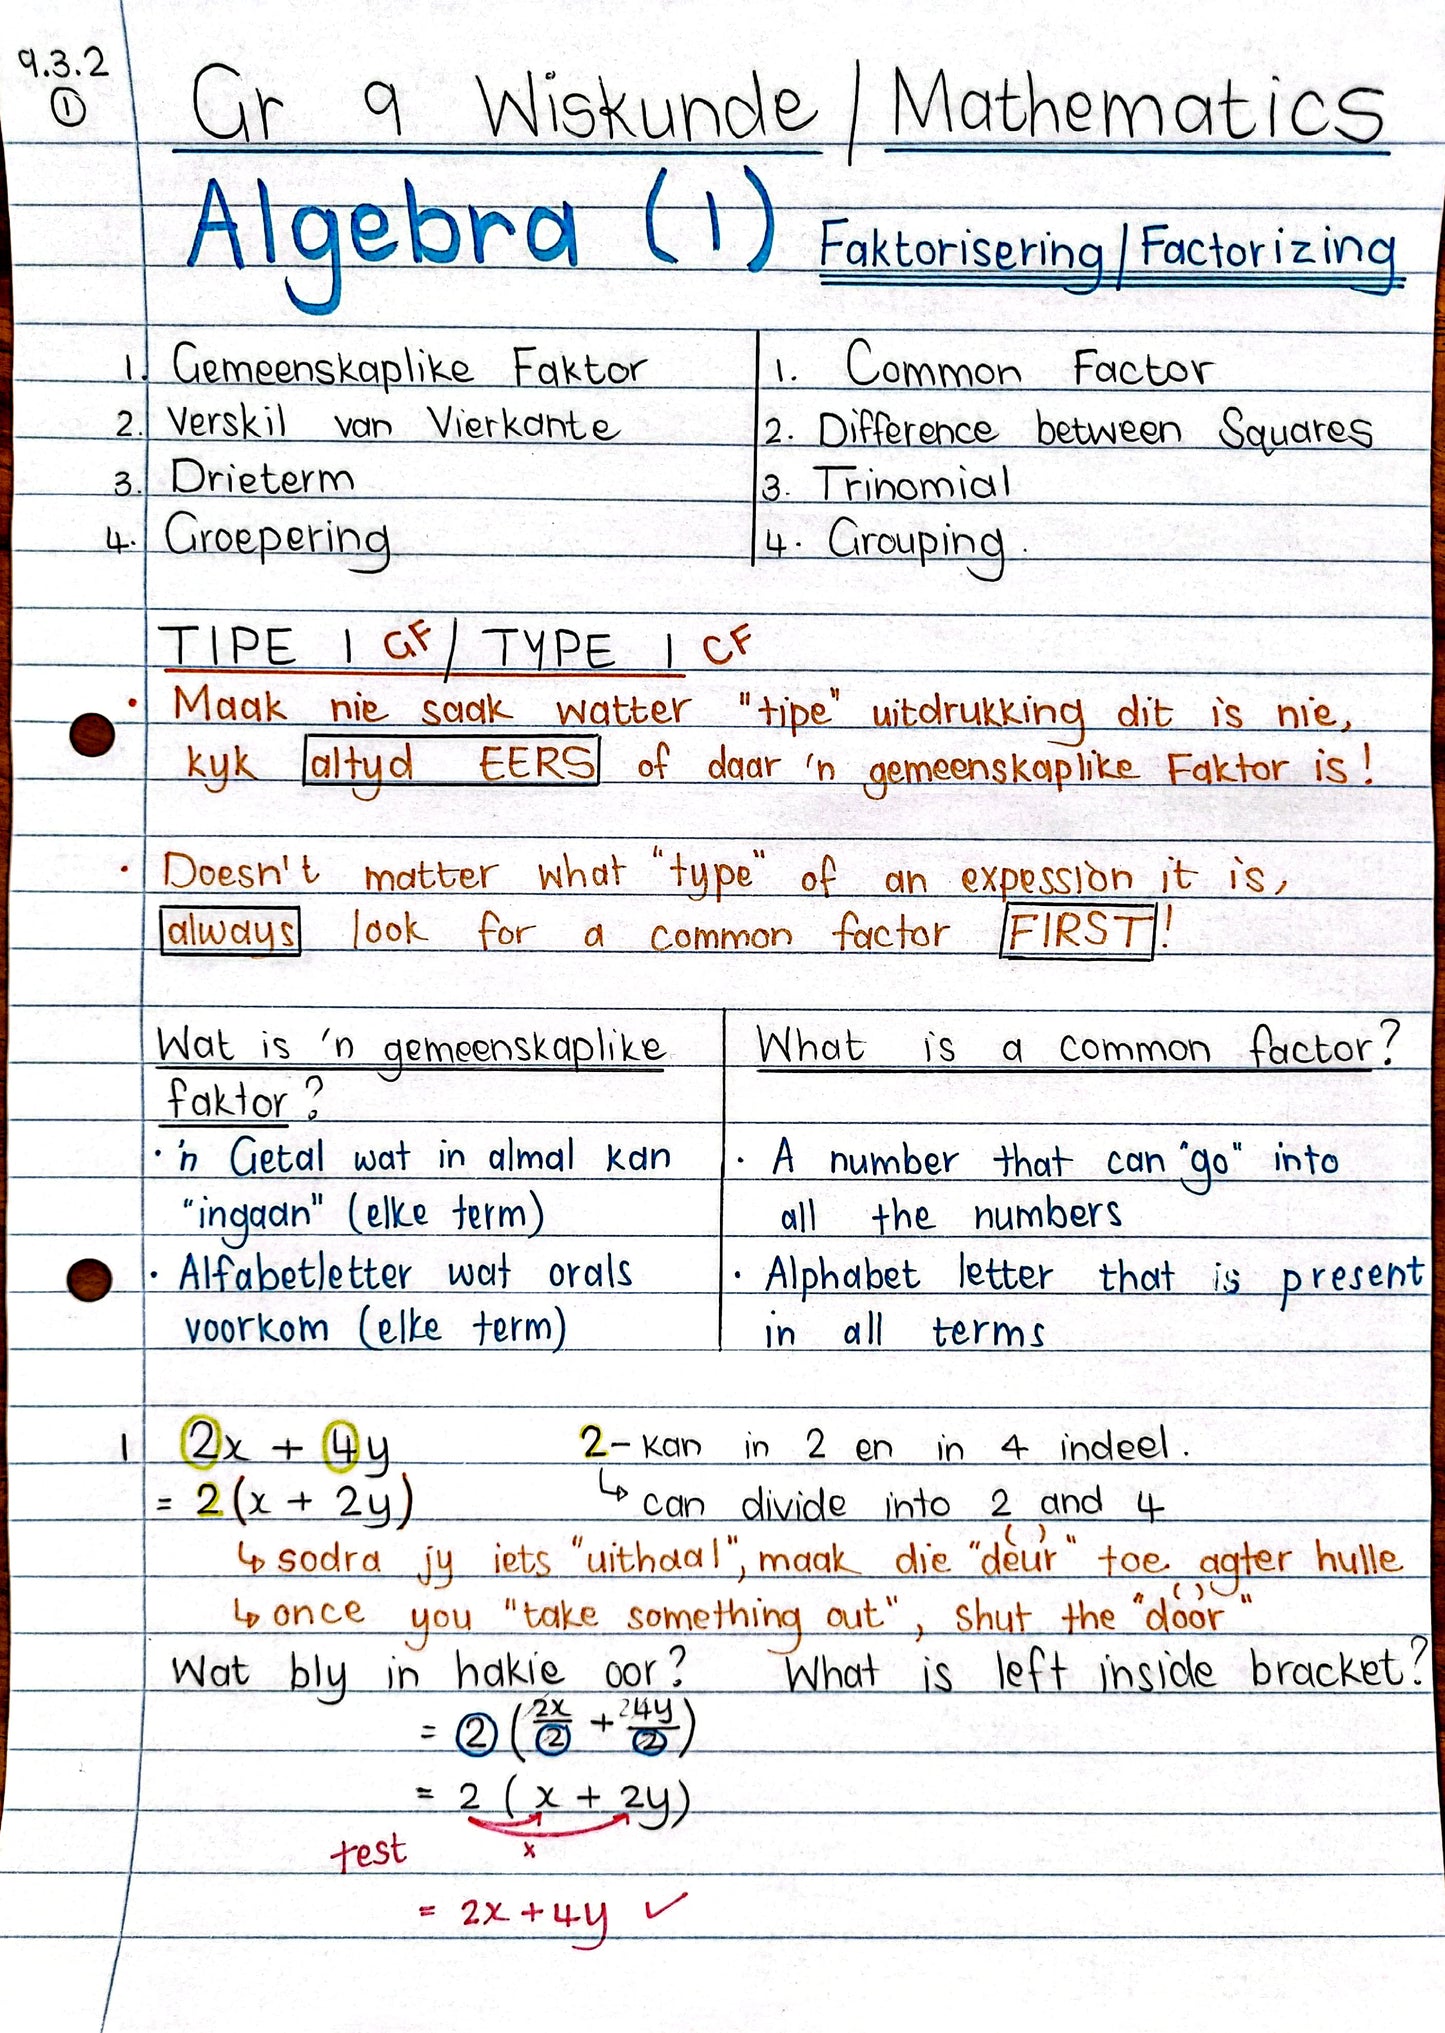 9.3.2
①
Gr 9 Wiskunde / Mathematics
Algebra (1) Faktorisering / Factorizing
1. Gemeenskaplike Faktor
2. Verskil van Vierkante
3. Drieterm
4. Groepering
1. Common Factor
2. Difference between Squares
3. Trinomial
4. Grouping.
TIPE 1 GF / TYPE 1 CF
• Maak nie saak watter "tipe" uitdrukking dit is nie,
kyk altyd EERS of daar 'n gemeenskaplike Faktor is!
• Doesn't matter what "type" of an expession it is,
always look for a common factor FIRST!
Wat is 'n gemeenskaplike
faktor?
• 'n Getal wat in almal kan
"ingaan" (elke term)
• Alfabetletter wat orals
voorkom (elke term)
What is a common factor?
• A number that can "go" into
all the numbers
• Alphabet letter that is present
in all terms
1 2x + 4y 2 - kan in 2 en in 4 indeel.
= 2(x + 2y) ↳ can divide into 2 and 4
↳ sodra jy iets "uithaal", maak die "deur" toe agter hulle
( )
↳ once you "take something out", shut the "door"
( )
Wat bly in hakie oor? What is left inside bracket?
= ② (2x/② + 24y/②)
= 2 (x + 2y)
test x
= 2x + 4y ✓